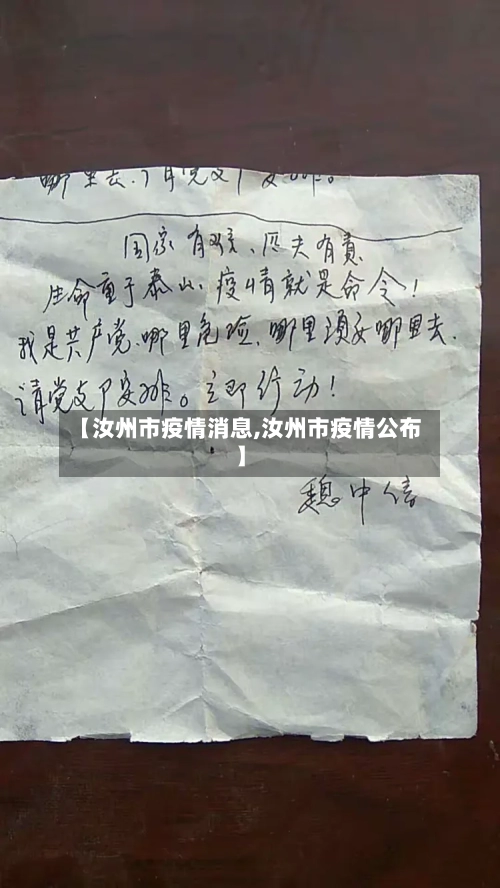 国家有难、匹夫有责、
生命重于泰山、疫情就是命令！
我是共产党、哪里危险、哪里须要哪里去、
请党支部安排。立即行动！
【汝州市疫情消息,汝州市疫情公布
】
魏中信